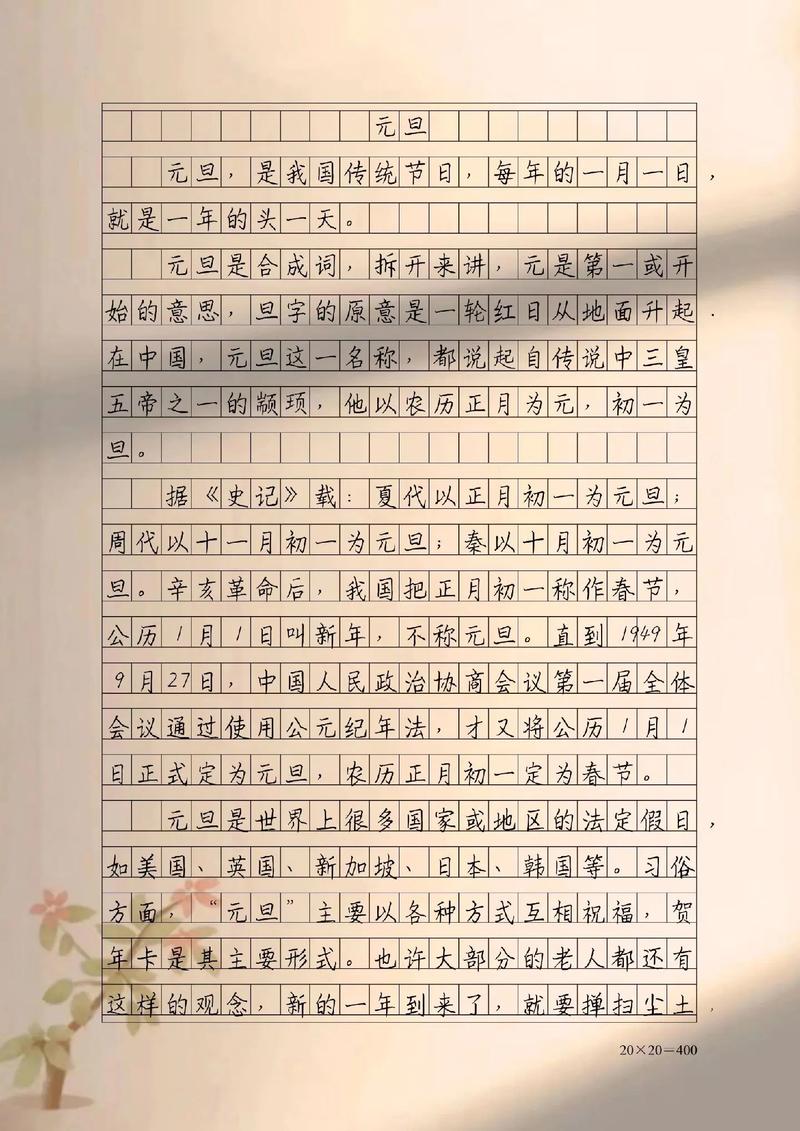 元旦
元旦，是我国传统节日，每年的一月一日，
就是一年的头一天。
元旦是合成词，拆开来讲，元是第一或开
始的意思，旦字的原意是一轮红日从地面升起.
在中国，元旦这一名称，都说起自传说中三皇
五帝之一的颛顼，他以农历正月为元，初一为
旦。
据《史记》载：夏代以正月初一为元旦；
周代以十一月初一为元旦；秦以十月初一为元
旦。辛亥革命后，我国把正月初一称作春节，
公历1月1日叫新年，不称元旦。直到1949年
9月27日，中国人民政治协商会议第一届全体
会议通过使用公元纪年法，才又将公历1月1
日正式定为元旦，农历正月初一定为春节。
元旦是世界上很多国家或地区的法定假日，
如美国、英国、新加坡、日本、韩国等。习俗
方面，“元旦”主要以各种方式互相祝福，贺
年卡是其主要形式。也许大部分的老人都还有
这样的观念，新的一年到来了，就要掸扫尘土，
20×20=400